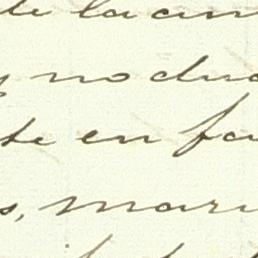 de la an
y no dud
te en fa
s, mari